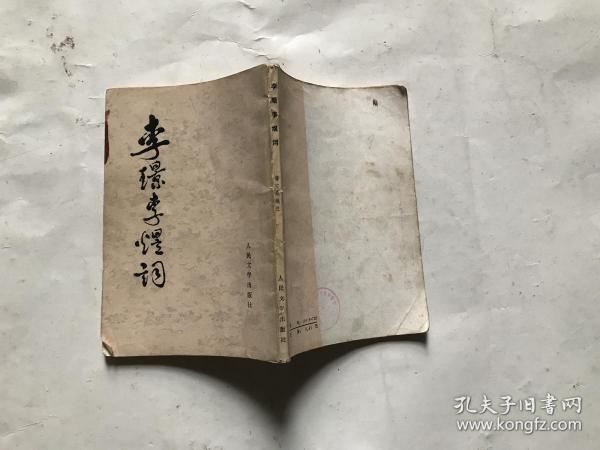 李璟李煜词
人民文学出版社
李璟李煜词
人民文学出版社
孔夫子旧书网
www.kongfz.com